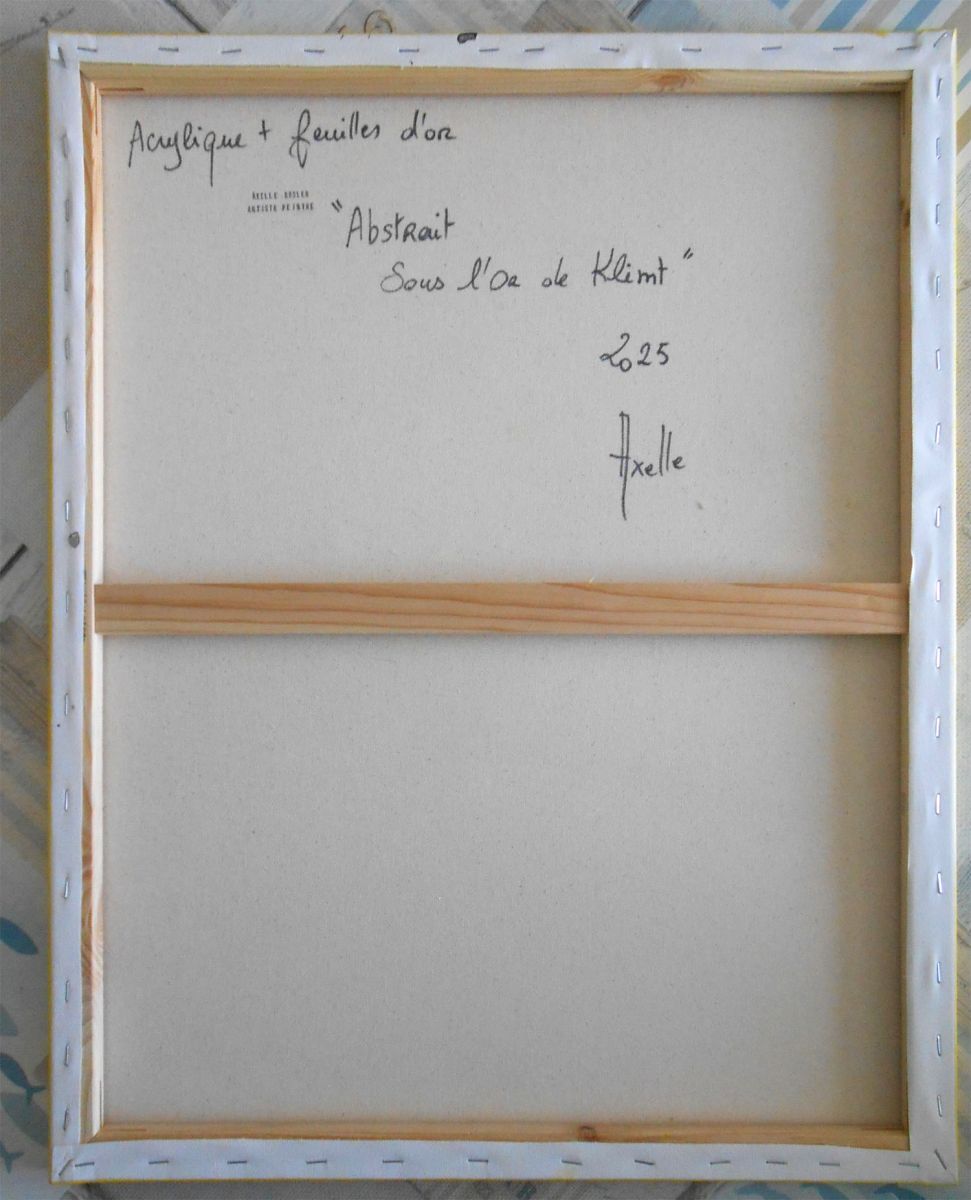 Acrylique + feuilles d'or
ARTISTE PEINTRE
"Abstrait
Sous l'Or de Klimt"
2025
Axelle